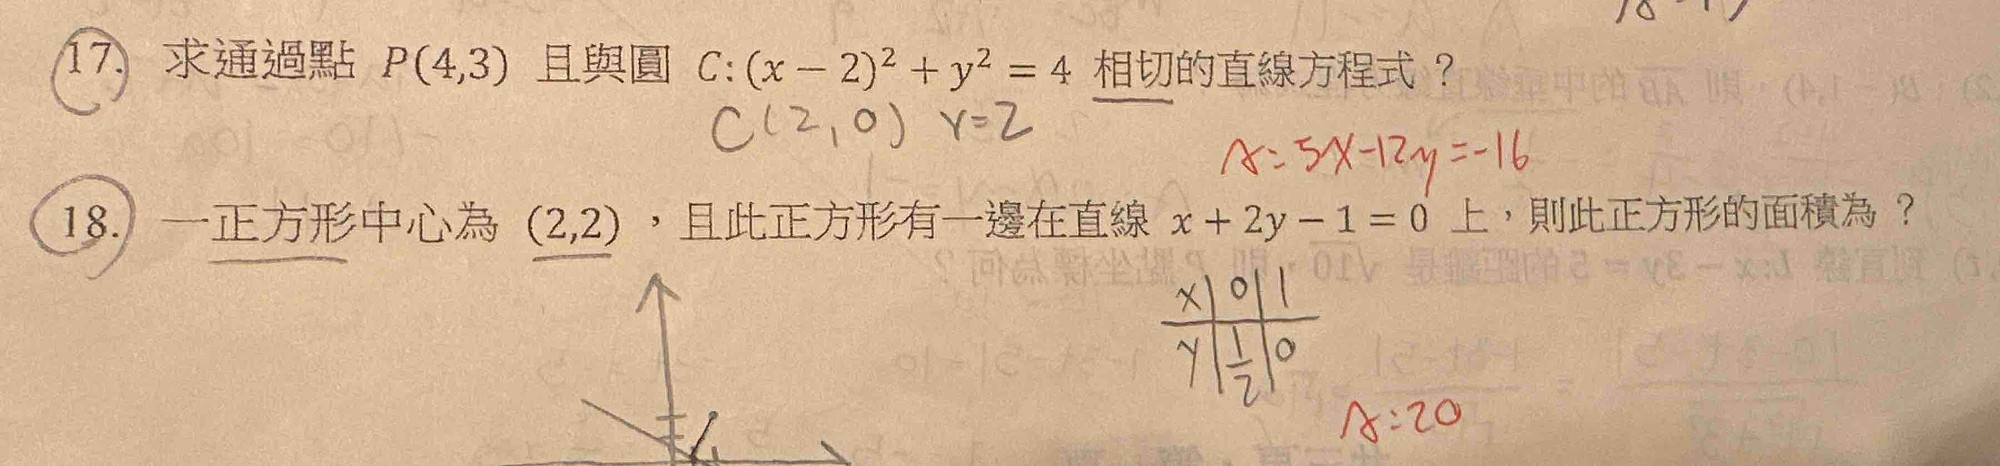 17. 求通過點 P(4,3) 且與圓 C: (x − 2)² + y² = 4 相切的直線方程式？
C(2,0) r=2
A: 5x-12y=-16
18. 一正方形中心為 (2,2)，且此正方形有一邊在直線 x + 2y − 1 = 0 上，則此正方形的面積為？
x | 0 | 1
y | 1/2 | 0
A: 20